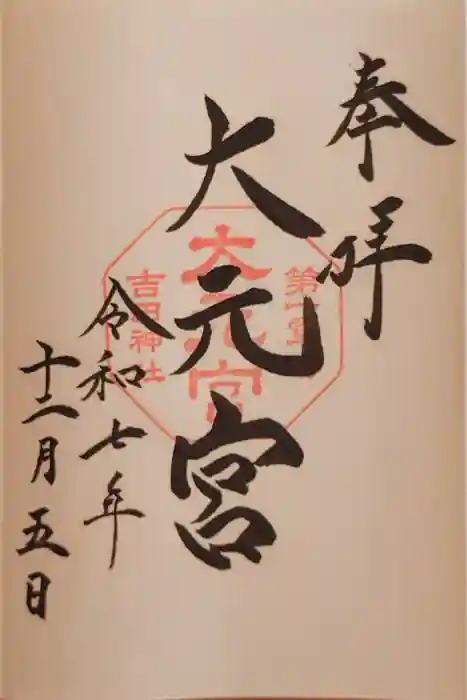 奉拝
大元宮
令和七年
十二月五日
第一
大元宮
吉田神社